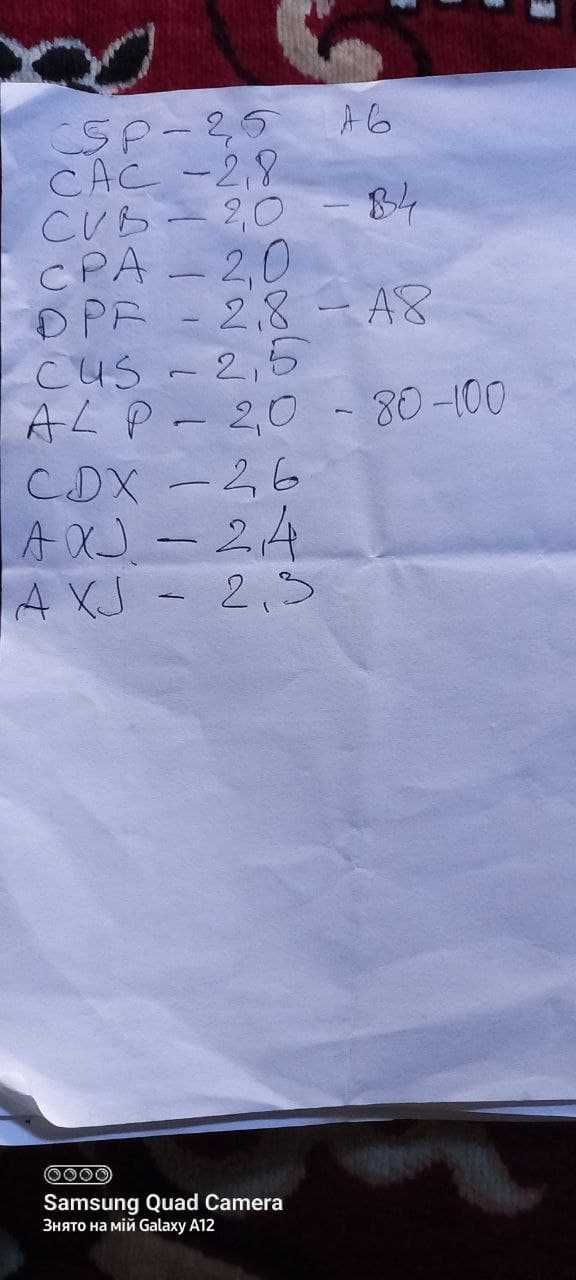 CSP - 2,5 A6
CAC - 2,8
CVB - 2,0 - B4
CPA - 2,0
DPF - 2,8 - A8
CUS - 2,5
ALP - 2,0 - 80-100
CDX - 2,6
AXJ - 2,4
AXJ - 2,3
Samsung Quad Camera
Знято на мій Galaxy A12